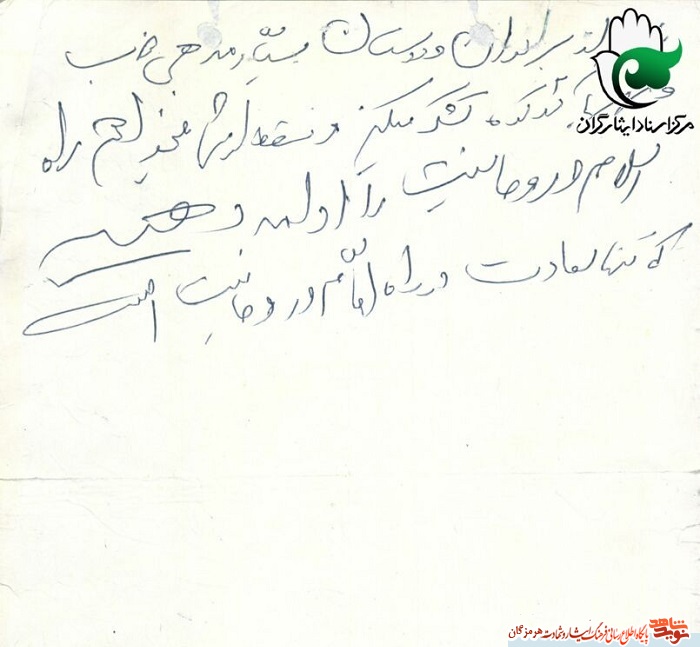 برادران و دوستان
کرده تشکر میکنم و فقط از شما میخواهم راه
اسلام و روحانیت را ادامه دهید
که تنها سعادت در راه امام و روحانیت است
مرکز اسناد ایثارگران
نوید شاهد
پایگاه اطلاع رسانی فرهنگ ایثار و شهادت هرمزگان